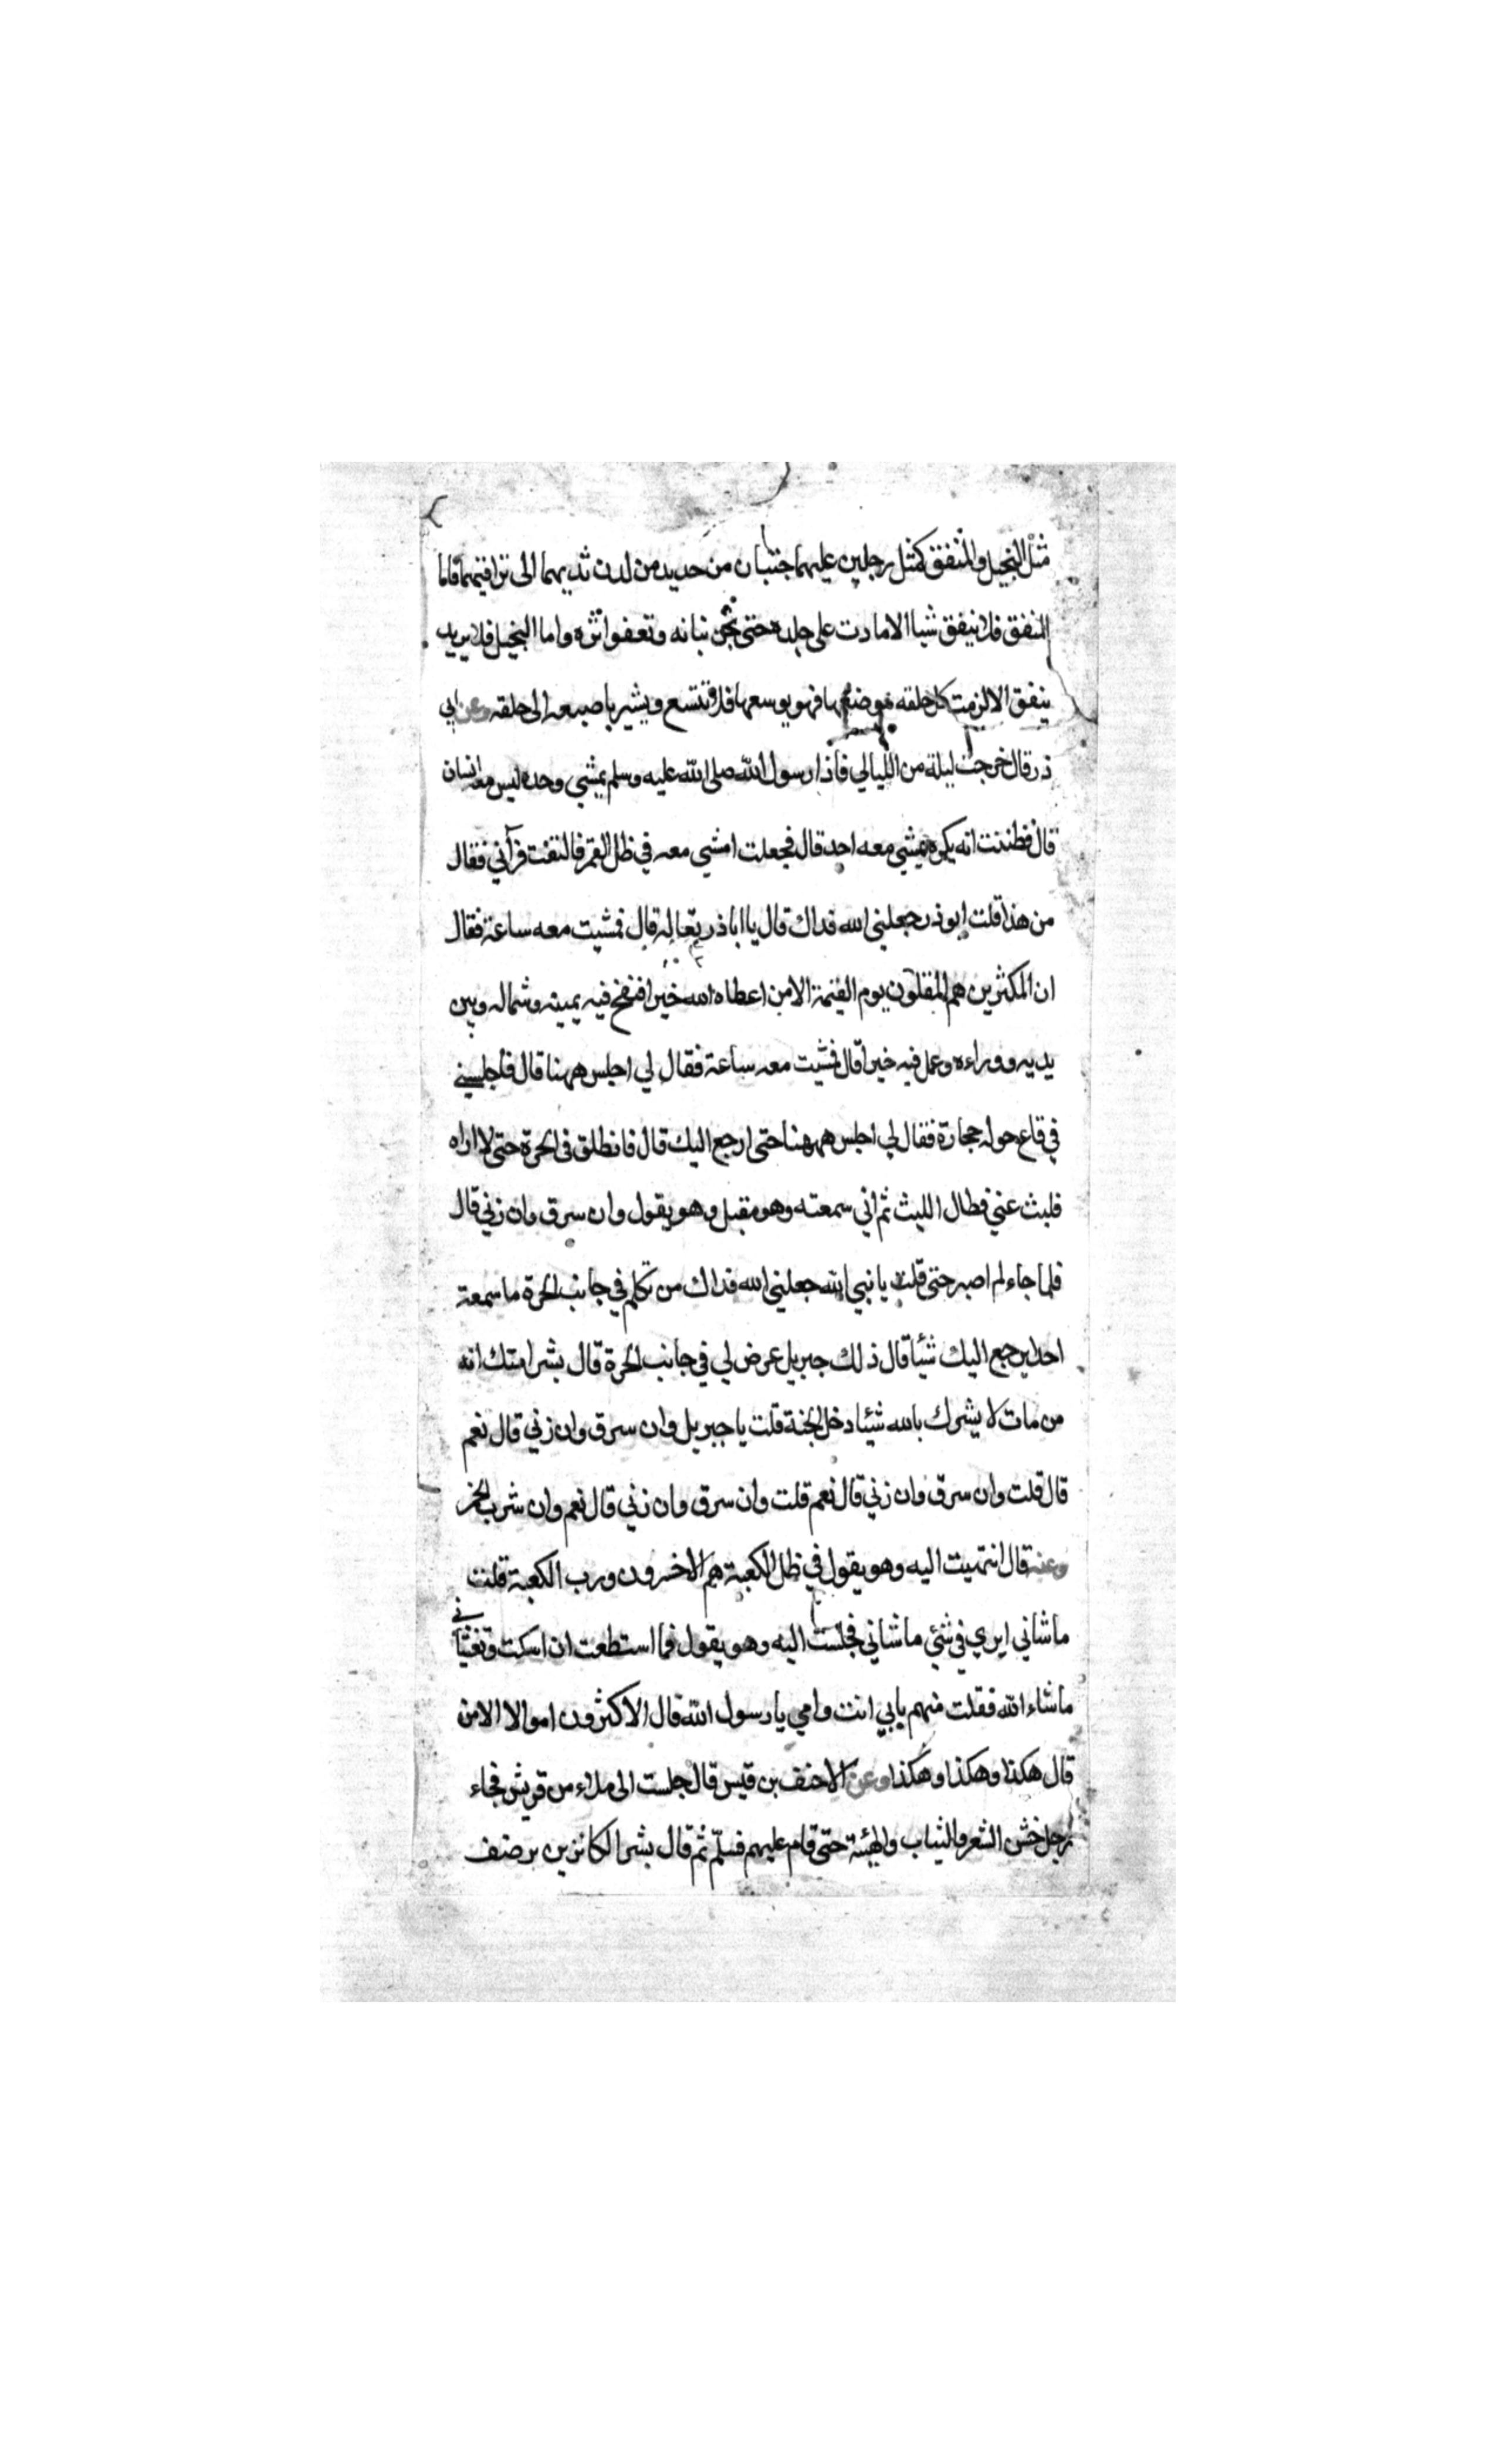 مثل البخيل والمنفق كمثل رجلين عليهما جنتبان من حديد من لدن ثديهما الى تراقيهما فاما
المنفق فلا ينفق شيا الا مادت على جلده حتى تجن بنانه وتعفوا اثره واما البخيل فلا يريد
ينفق الا لزمت كل حلقه موضعها فهو يوسعها فلا تتسع ويشير باصبعه الى حلقه وعن ابي
ذر قال خرجت ليلة من الليالي فاذا رسول الله صلى الله عليه وسلم يمشي وحده ليس معه انسان
قال فظننت انه يكره يمشي معه احد قال فجعلت امشي معه في ظل القمر فالتفت فرآني فقال
من هذا قلت ابو ذر جعلني الله فداك قال يا ابا ذر تعاله قال فمشيت معه ساعة فقال
ان المكثرين هم المقلون يوم القيمة الا من اعطاه الله خيرا فنفخ فيه يمينه وشماله وبين
يديه ووراءه وعمل فيه خيرا قال فمشيت معه ساعة فقال لي اجلس ههنا قال فاجلسني
في قاع حوله حجارة فقال لي اجلس ههنا حتى ارجع اليك قال فانطلق في الحرة حتى لا اراه
فلبث عني فطال اللبث ثم اني سمعته وهو مقبل وهو يقول وان سرق وان زني قال
فلما جاء لم اصبر حتى قلت يا نبي الله جعلني الله فداك من تكلم في جانب الحرة ما سمعة
احدا يرجع اليك شيئا قال ذلك جبريل عرض لي في جانب الحرة قال بشر امتك انه
من مات لا يشرك بالله شيئا دخل الجنة قلت يا جبريل وان سرق وان زني قال نعم
قال قلت وان سرق وان زني قال نعم قلت وان سرق وان زني قال نعم وان شرب الخمر
وعنه قال انتهيت اليه وهو يقول في ظل الكعبة هم الاخسرون ورب الكعبة قلت
ما شاني ايري في شئي ما شاني فجلست اليه وهو يقول فما استطعت ان اسكت وتغشاني
ما شاء الله فقلت منهم بابي انت وامي يا رسول الله قال الاكثرون اموالا الا من
قال هكذا وهكذا وهكذا وعن الاحنف بن قيس قال جلست الى ملاء من قريش فجاء
رجل خشن الشعر والثياب والهيئة حتى قام عليهم فسلم ثم قال بشر الكانزين برضف